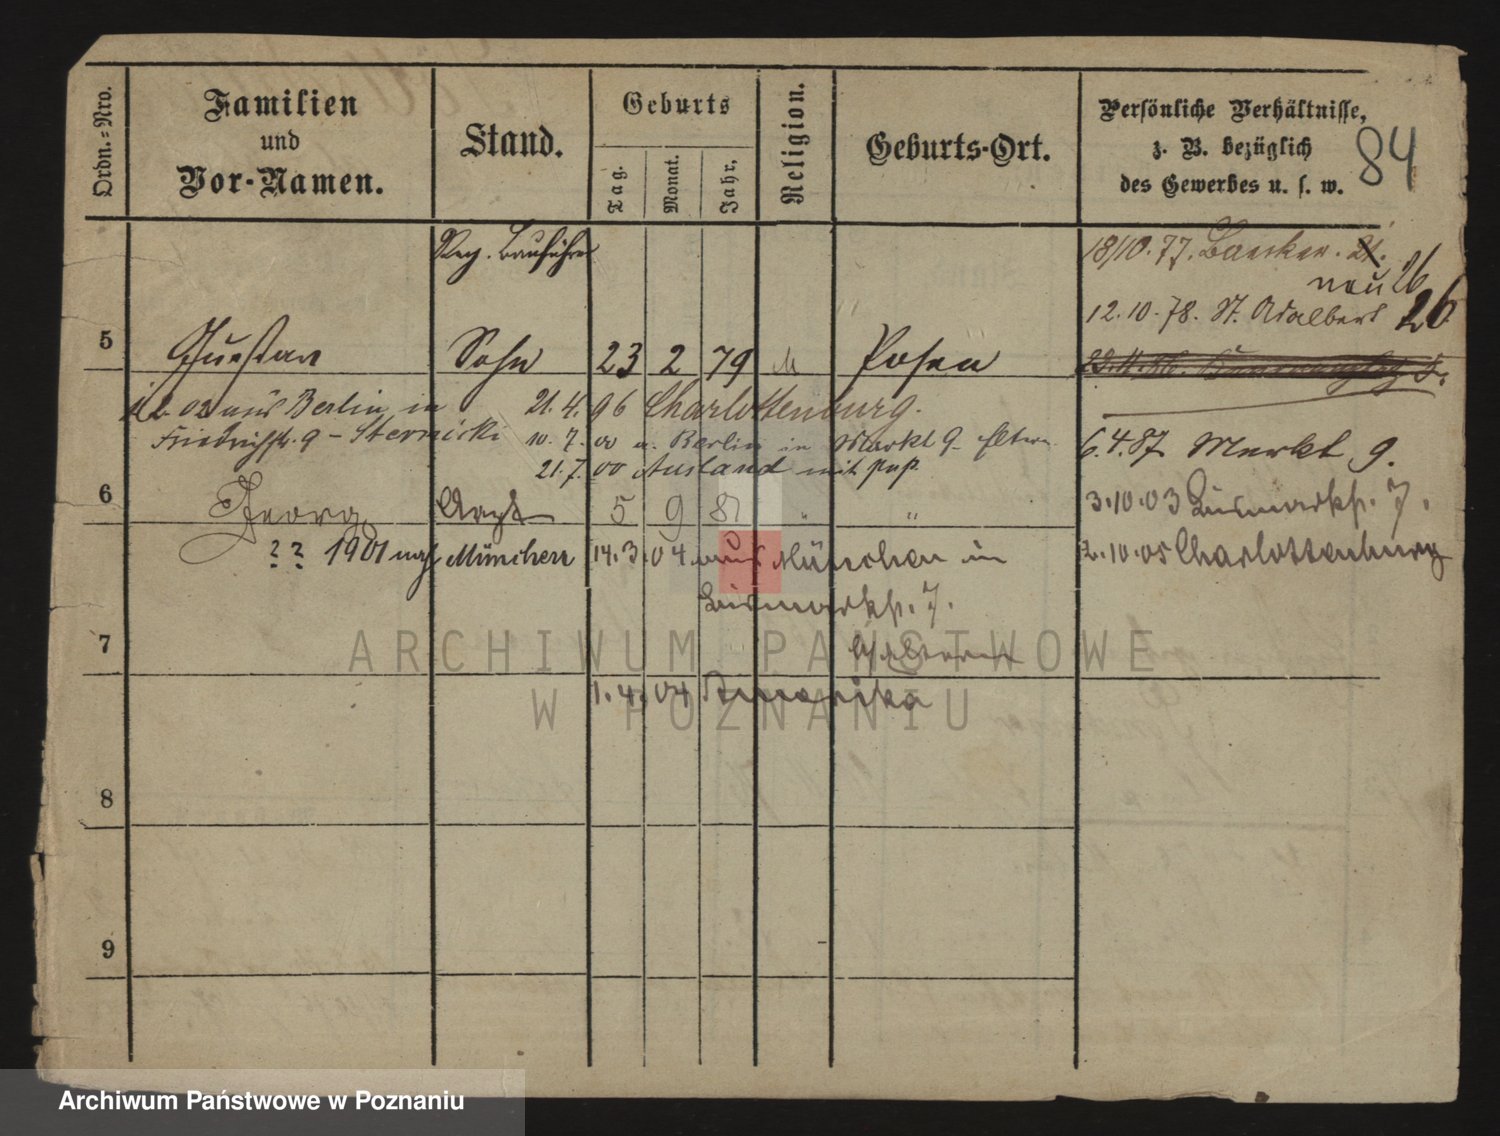 Ordn.-Nro.
Familien
und
Vor-Namen.
Stand.
Geburts
Tag.
Monat.
Jahr.
Religion.
Geburts-Ort.
Persönliche Verhältnisse,
z. B. bezüglich
des Gewerbes u. s. w.
84
Reg. Bauführer
18/10.77. Baecker. 21.
neu 26
12.10.78. St. Adalbert 26
5 Gustav Sohn 23 2 79 Posen
2.02 aus Berlin in 21.4.96 Charlottenburg.
Friedrichstr. 9 - Sternicki 10.7.00 a. Berlin in Markt 9 - Eltern
21.7.00 Ausland mit
6.4.87 Markt 9.
6 Georg 5 9 81 " "
3.10.03 Bismarckstr. 7.
? ? 1901 nach München 14.3.04 aus München in
Bismarckstr. 7.
2.10.05 Charlottenburg
7 Eltern
1.4.04 Amerika
8
9
ARCHIWUM PAŃSTWOWE
W POZNANIU
Archiwum Państwowe w Poznaniu